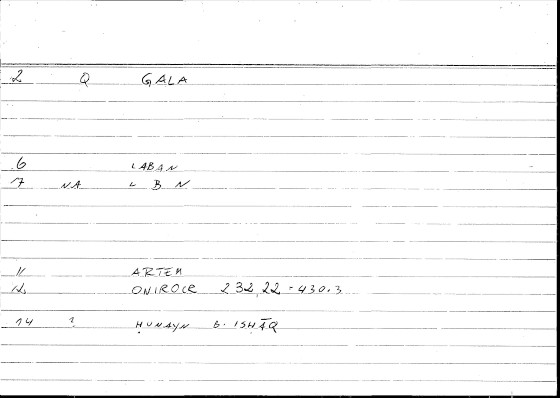 2 Q GALA
6 LABAN
7 NA L B N
11 ARTEM
12 ONIROCR 232,22 - 430.3
14 ? ḤUNAYN b. ISḤĀQ